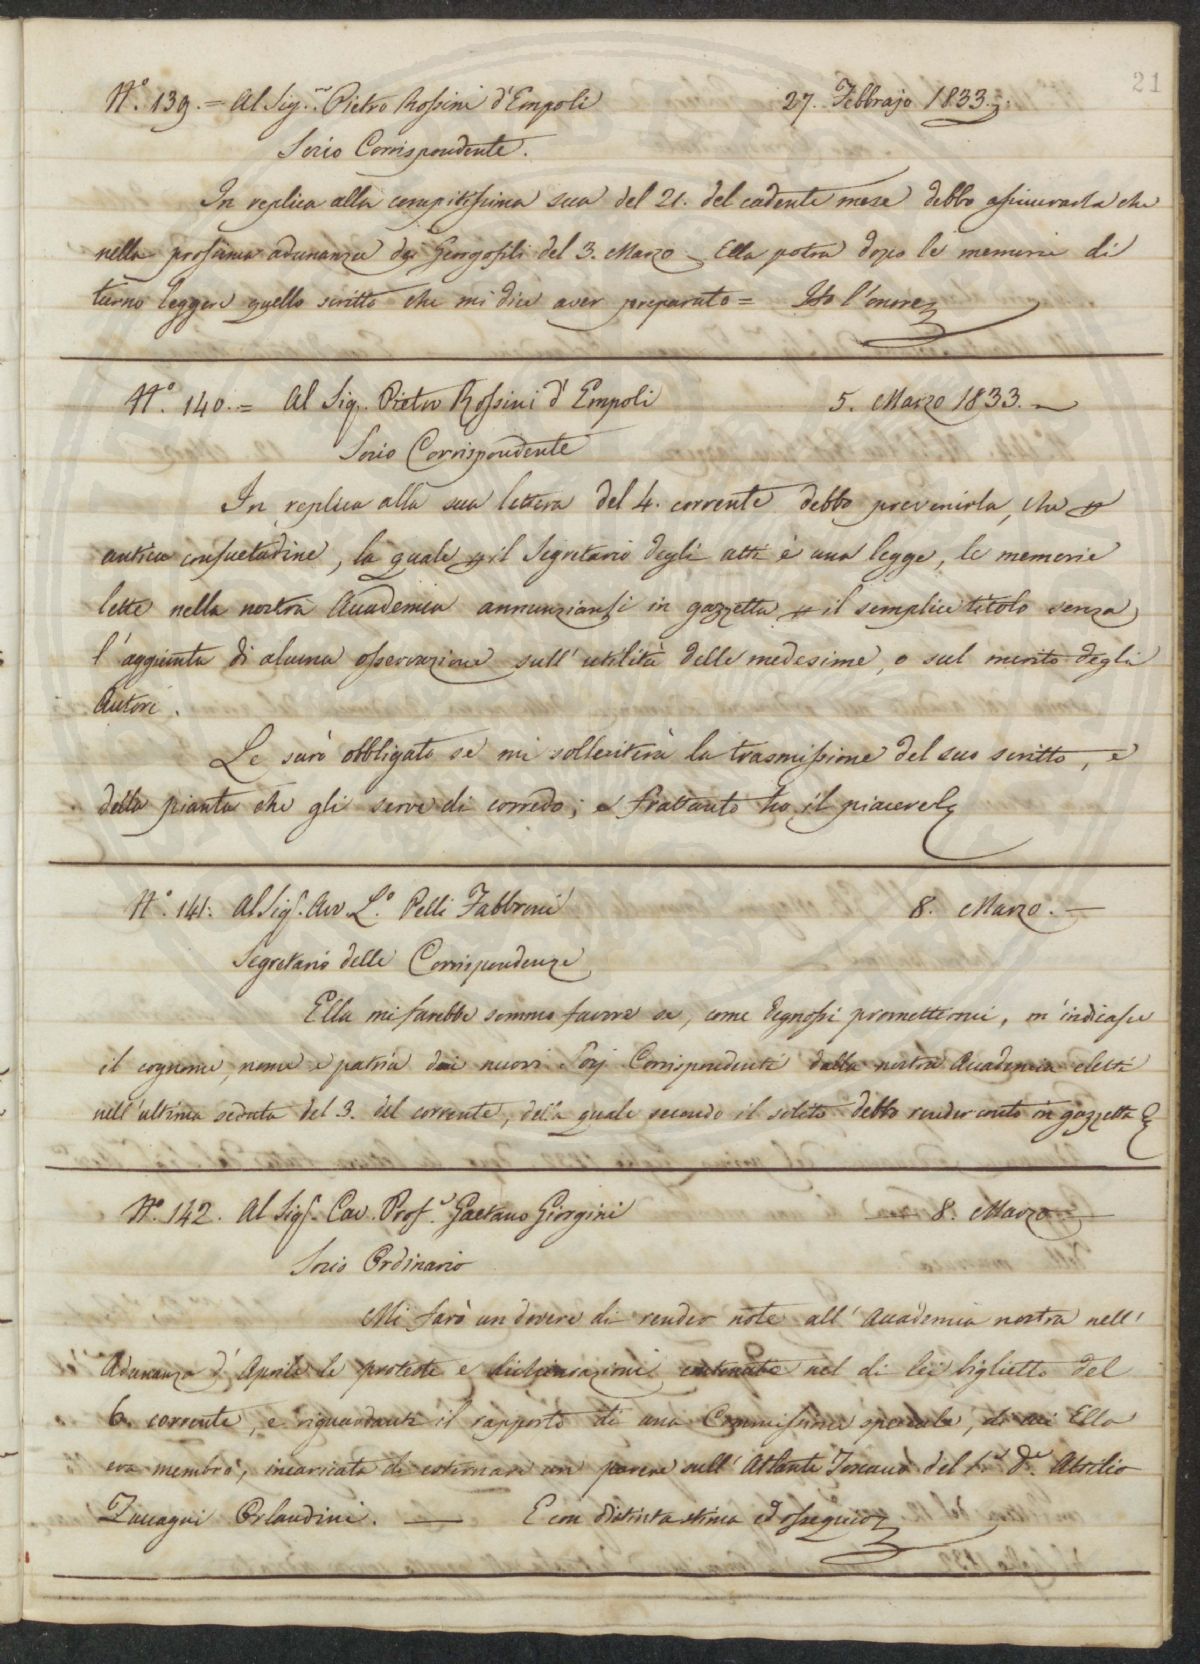 21
N.º 139. = Al Sig.re Pietro Rossini d'Empoli 27. Febbrajo 1833.
Socio Corrispondente.
In replica alla compitissima sua del 21. del cadente mese debbo assicurarla che
nella prossima adunanza dei Georgofili del 3. Marzo Ella potrà dopo le memorie di
turno leggere quello scritto che mi dice aver preparato = Ho l'onore
N.º 140. = Al Sig. Pietro Rossini d'Empoli 5. Marzo 1833.
Socio Corrispondente
In replica alla sua lettera del 4. corrente debbo prevenirla, che p
antica consuetudine, la quale p il Segretario degli atti è una legge, le memorie
lette nella nostra Accademia annunziansi in gazzetta p il semplice titolo senza
l'aggiunta di alcuna osservazione sull'utilità delle medesime, o sul merito degli
Autori.
Le sarò obbligato se mi solleciterà la trasmissione del suo scritto, e
della pianta che gli serve di corredo; e frattanto ho il piacere
N.º 141. Al Sig.r Avv. L.º Pelli Fabbroni 8. Marzo.
Segretario delle Corrispondenze
Ella mi farebbe sommo favore se, come degnossi promettermi, m'indicasse
il cognome, nome e patria dei nuovi Socj Corrispondenti dalla nostra Accademia eletti
nell'ultima seduta del 3. del corrente, della quale secondo il solito debbo render conto in gazzetta
N.º 142. Al Sig.r Cav. Prof.e Gaetano Giorgini 8. Marzo
Socio Ordinario
Mi farò un dovere di render note all'Accademia nostra nell'
Adunanza d'Aprile le proteste e dichiarazioni contenute nel di lei biglietto del
6. corrente, e riguardanti il rapporto di una Commissione speciale, di cui Ella
era membro, incaricata di esternare un parere sull'Atlante Toscano del Sig. D.re Attilio
Zuccagni Orlandini. E con distinta stima ed ossequio